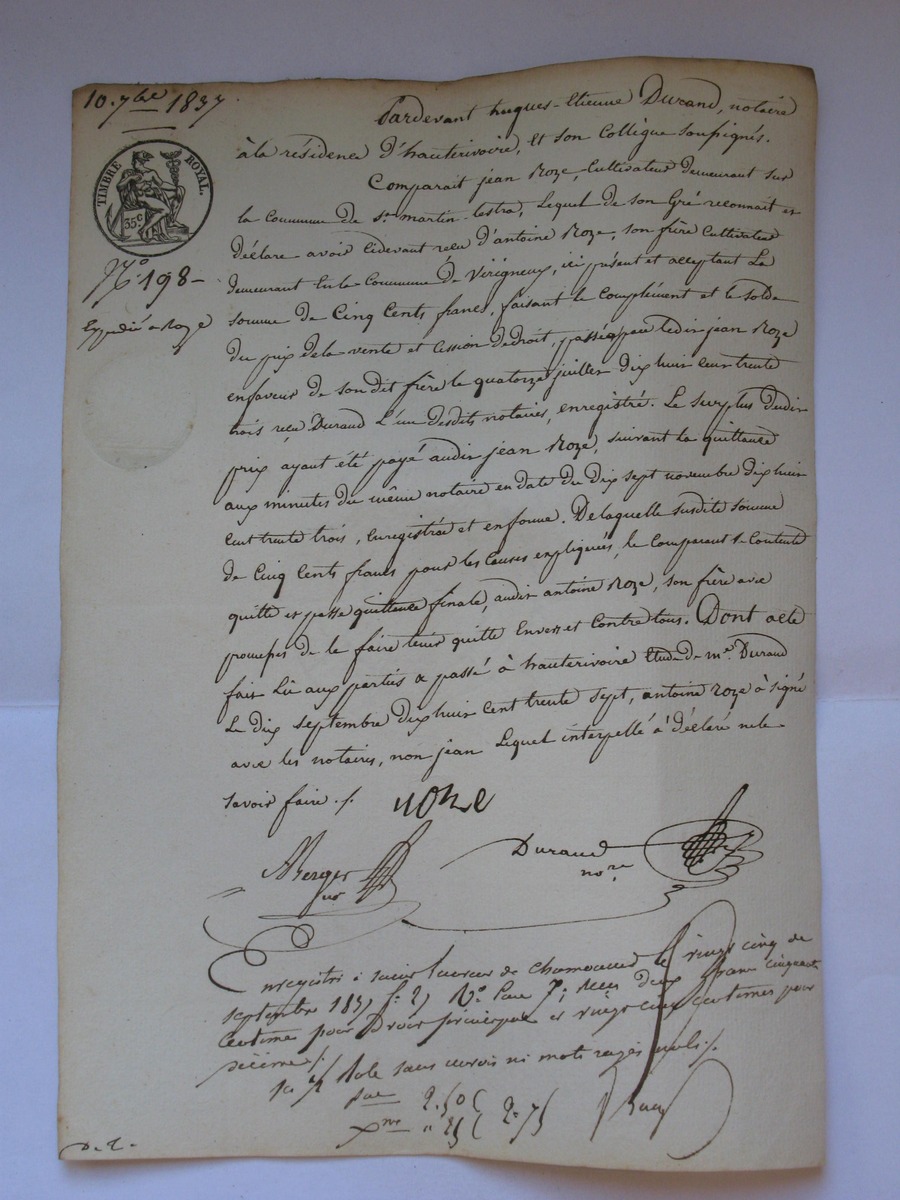 10. 7bre 1837
TIMBRE ROYAL.
35c
N° 198 -
Expédié a Roze
Pardevant hugues-Etienne Durand, notaire
à la résidence d'hauterivoire, et son Collègue soussignés.
Comparait jean Roze, Cultivateur demeurant sur
la Commune de St martin-lestra, Lequel de son Gré reconnait et
déclare avoir cidevant recu d'antoine Roze, son frère Cultivateur
demeurant En la Commune de Virigneux, ici présent et acceptant La
somme de Cinq Cents francs, faisant le Complément et le solde
du prix dela vente et Cession dedroit, passée par ledit jean Roze
enfaveur de son dit frère le quatorze juillet dix huit cent trente
trois reçu Durand L'un desdits notaires, enregistré. Le surplus dudit
prix ayant été payé audit jean Roze, suivant la quittance
aux minutes du même notaire en date du dix sept novembre dix huit
cent trente trois, Enregistrée et enforme. Delaquelle susdite somme
de Cinq Cents francs pour les Causes expliquées, le Comparant se Contente
quitte et passe quittance finale, audit antoine Roze, son frère avec
promesse de le faire tenir quitte Envers et Contre tous. Dont acte
fait Lu aux parties & passé à hauterivoire Etude de me. Durand
Le dix septembre dix huit Cent trente sept, antoine roze à signé
avec les notaires, non jean Lequel interpellé à déclaré ne le
savoir faire ./.
roze
Berger
Durand
nore
Enregistré à saint Laurent de chamousset le vingt cinq de
septembre 1837 f° 27 V° Case 7e; recu deux francs cinquante
Centimes pour Droit principal et vingt cinq centimes pour
décime /.
Role sans renvoi ni mots rayés nuls /.
pal 2.50
xme " 25
2.75
D. L.